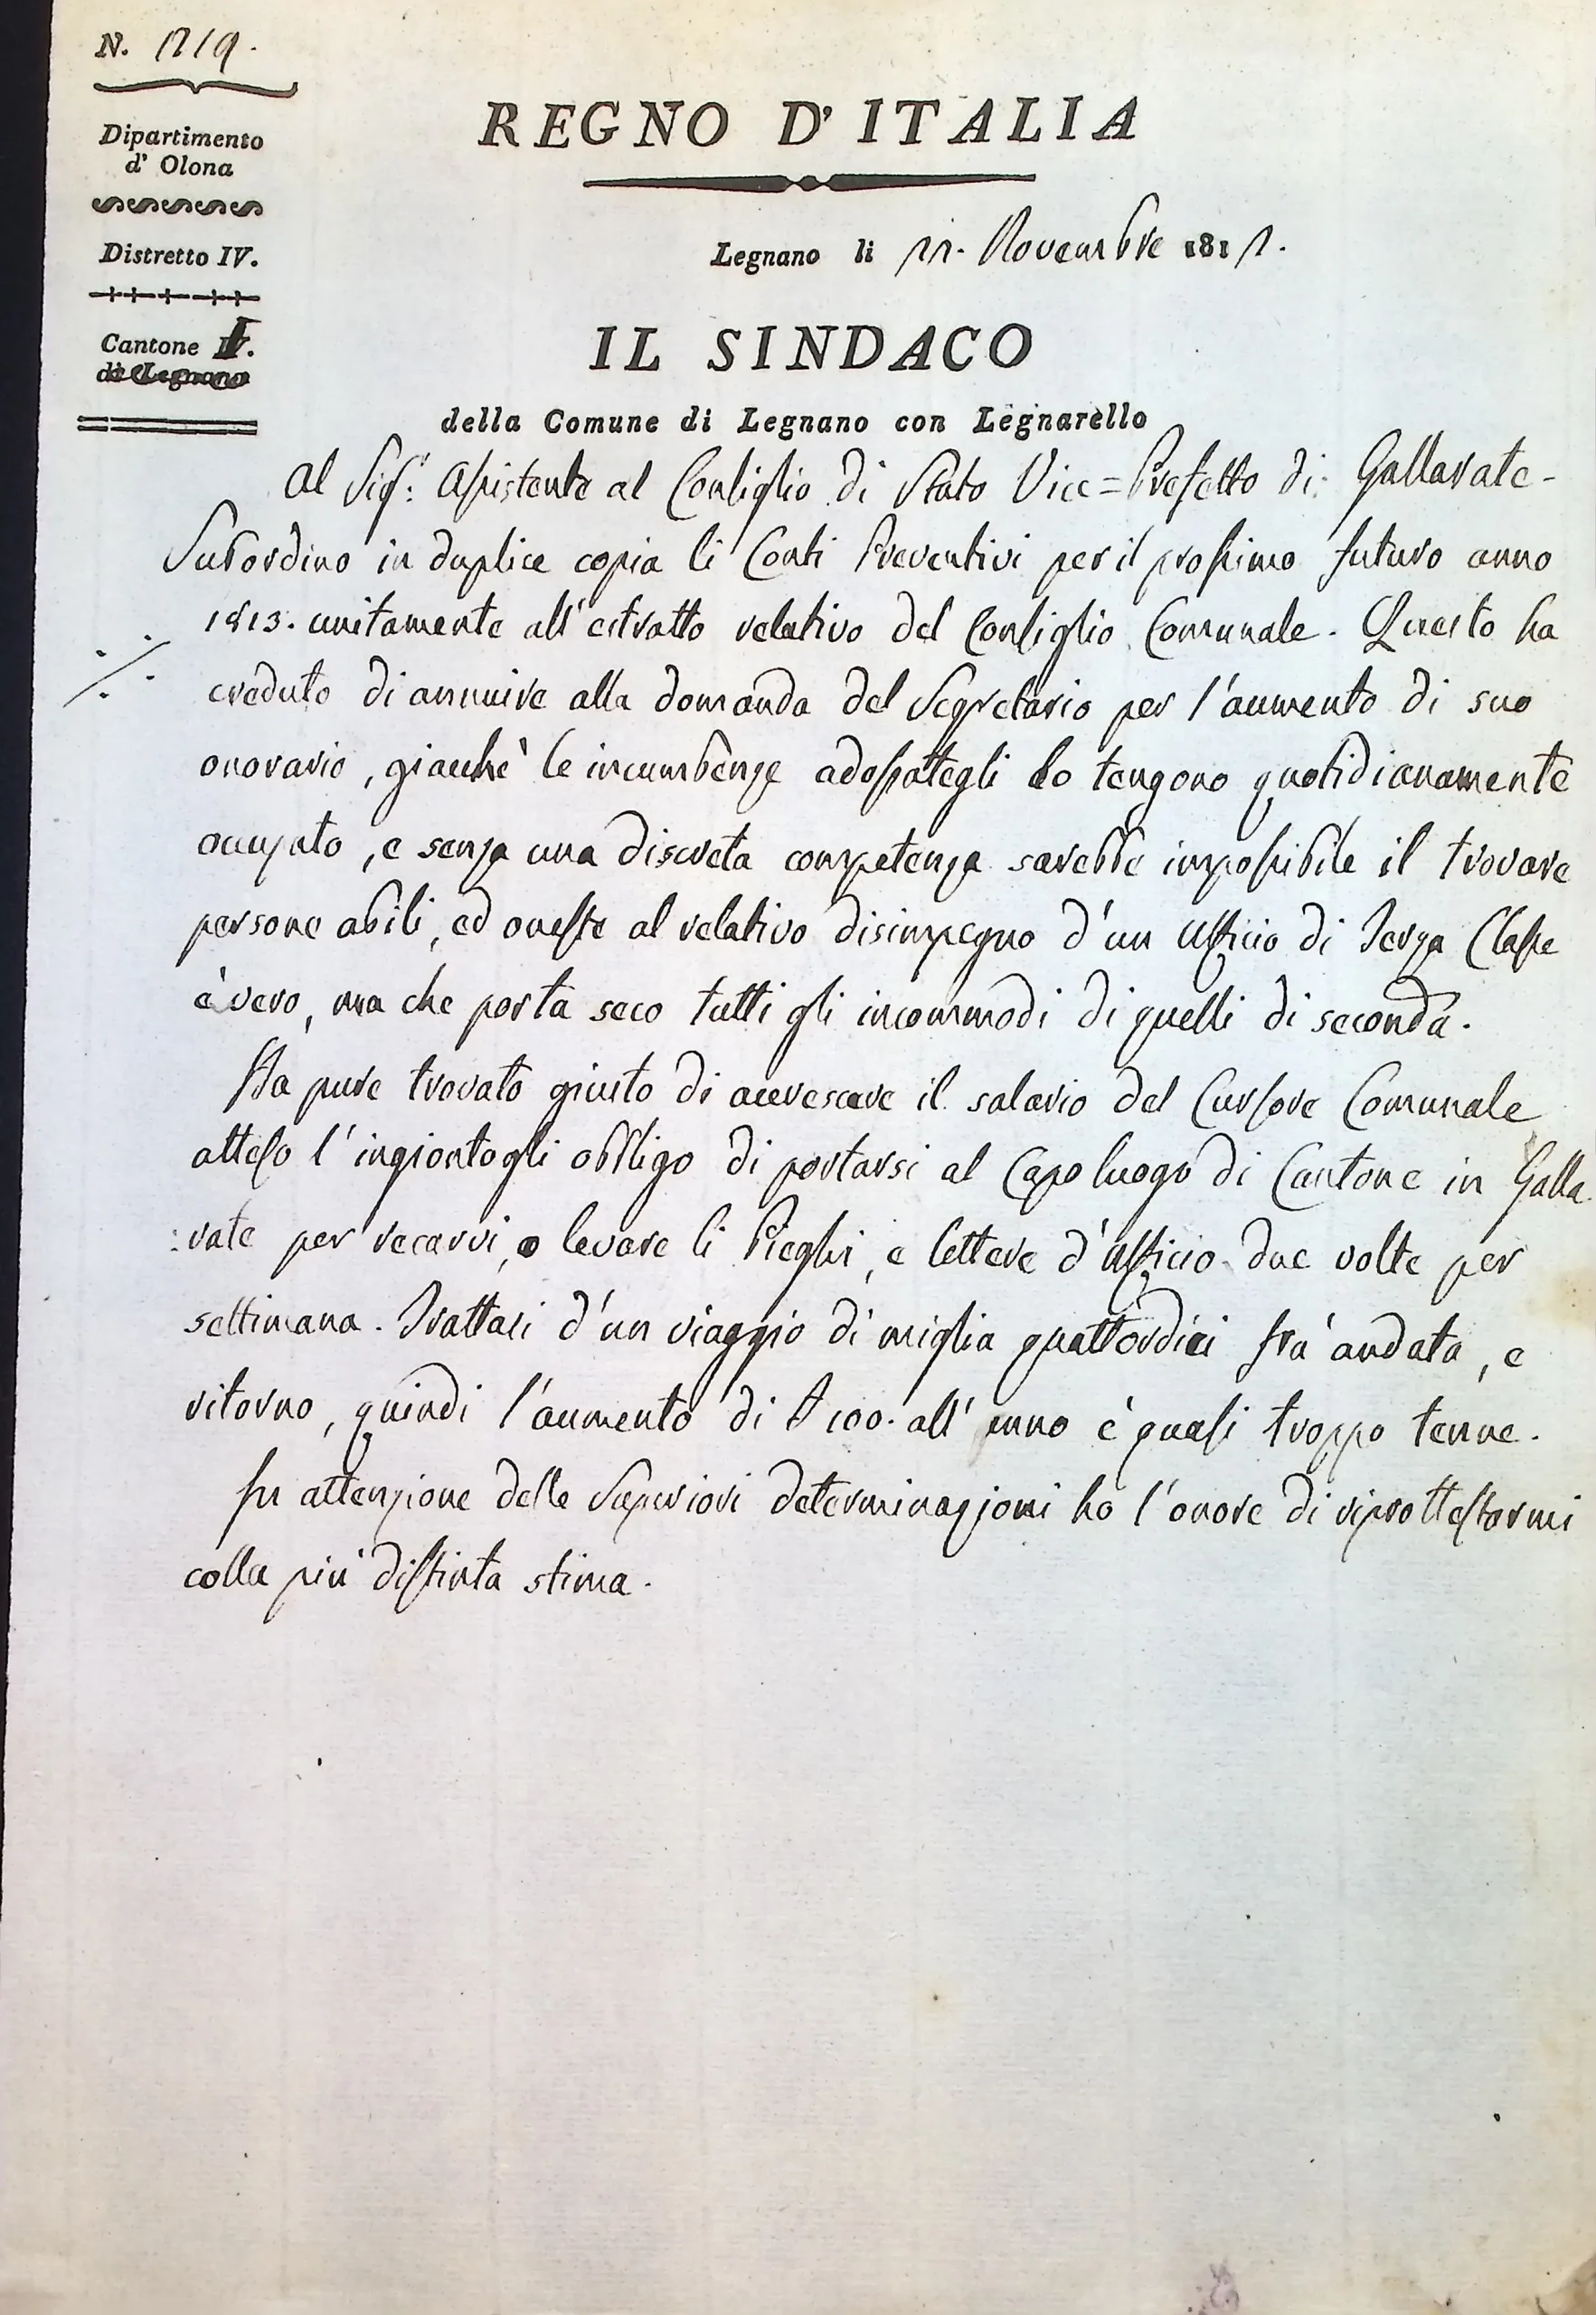 N. 1219.
Dipartimento
d' Olona
Distretto IV.
Cantone I.
di Legnano
REGNO D' ITALIA
Legnano li 22. Novembre 1812.
IL SINDACO
della Comune di Legnano con Legnarello
Al Sig.r Assistente al Consiglio di Stato Vice=Prefetto di Gallarate-
Subordino in duplice copia li Conti Preventivi per il prossimo futuro anno
1813. unitamente all'estratto relativo del Consiglio Comunale. Questo ha
creduto di annuire alla domanda del Segretario per l'aumento di suo
onorario, giacchè le incumbenze adossategli lo tengono quotidianamente
occupato, e senza una discreta competenza sarebbe impossibile il trovare
persone abili, ed oneste al relativo disimpegno d'un Ufficio di Terza Classe
è vero, ma che porta seco tutti gli incommodi di quelli di seconda.
Ha pure trovato giusto di accrescere il salario del Cursore Comunale
atteso l'ingiontogli obbligo di portarsi al Capo luogo di Cantone in Galla
:rate per recarvi, o levare li Pieghi, e lettere d'Ufficio due volte per
settimana. Trattasi d'un viaggio di miglia quattordici frà andata, e
ritorno, quindi l'aumento di 100. all'anno è quasi troppo tenue.
In attenzione delle Superiori determinazioni ho l'onore di riprottestarmi
colla più distinta stima.